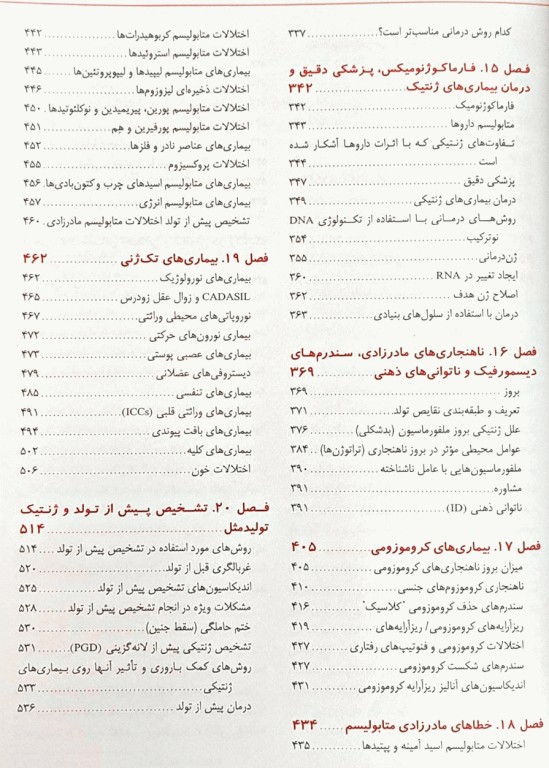 کدام روش درمانی مناسب‌تر است؟ ........ ۳۳۷
فصل ۱۵. فارماکوژنومیکس، پزشکی دقیق و
درمان بیماری‌های ژنتیک ........ ۳۴۲
فارماکوژنومیک ........ ۳۴۲
متابولیسم داروها ........ ۳۴۳
تفاوت‌های ژنتیکی که با اثرات داروها آشکار شده
است ........ ۳۴۴
پزشکی دقیق ........ ۳۴۷
درمان بیماری‌های ژنتیکی ........ ۳۴۹
روش‌های درمانی با استفاده از تکنولوژی DNA
نوترکیب ........ ۳۵۴
ژن‌درمانی ........ ۳۵۵
ایجاد تغییر در RNA ........ ۳۶۰
اصلاح ژن هدف ........ ۳۶۲
درمان با استفاده از سلول‌های بنیادی ........ ۳۶۳
فصل ۱۶. ناهنجاری‌های مادرزادی، سندرم‌های
دیسمورفیک و ناتوانی‌های ذهنی ........ ۳۶۹
بروز ........ ۳۶۹
تعریف و طبقه‌بندی نقایص تولد ........ ۳۷۱
علل ژنتیکی بروز ملفورماسیون (بدشکلی) ........ ۳۷۶
عوامل محیطی مؤثر در بروز ناهنجاری (تراتوژن‌ها) ........ ۳۸۴
ملفورماسیون‌هایی با عامل ناشناخته ........ ۳۹۰
مشاوره ........ ۳۹۱
ناتوانی ذهنی (ID) ........ ۳۹۱
فصل ۱۷. بیماری‌های کروموزومی ........ ۴۰۵
میزان بروز ناهنجاری‌های کروموزومی ........ ۴۰۵
ناهنجاری کروموزوم‌های جنسی ........ ۴۱۰
سندرم‌های حذف کروموزومی "کلاسیک" ........ ۴۱۶
ریزآرایه‌های کروموزومی/ ریزآرایه‌های ........ ۴۱۹
اختلالات کروموزومی و فنوتیپ‌های رفتاری ........ ۴۲۷
سندرم‌های شکست کروموزومی ........ ۴۲۷
اندیکاسیون‌های آنالیز ریزآرایه کروموزومی ........ ۴۳۱
فصل ۱۸. خطاهای مادرزادی متابولیسم ........ ۴۳۴
اختلالات متابولیسم اسید آمینه و پپتیدها ........ ۴۳۵
اختلالات متابولیسم کربوهیدرات‌ها ........ ۴۴۲
اختلالات متابولیسم استروئیدها ........ ۴۴۳
بیماری‌های متابولیسم لیپیدها و لیپوپروتئین‌ها ........ ۴۴۵
اختلالات ذخیره‌ای لیزوزوم‌ها ........ ۴۴۶
اختلالات متابولیسم پورین، پیریمیدین و نوکلئوتیدها ........ ۴۵۰
اختلالات متابولیسم پورفیرین و هِم ........ ۴۵۱
بیماری‌های عناصر نادر و فلزها ........ ۴۵۲
اختلالات پروکسیزوم ........ ۴۵۵
بیماری‌های متابولیسم اسیدهای چرب و کتون‌بادی‌ها ........ ۴۵۶
بیماری‌های متابولیسم انرژی ........ ۴۵۷
تشخیص پیش از تولد اختلالات متابولیسم مادرزادی ........ ۴۶۰
فصل ۱۹. بیماری‌های تک‌ژنی ........ ۴۶۲
بیماری‌های نورولوژیک ........ ۴۶۲
CADASIL و زوال عقل زودرس ........ ۴۶۵
نوروپاتی‌های محیطی وراثتی ........ ۴۶۷
بیماری نورون‌های حرکتی ........ ۴۷۲
بیماری‌های عصبی پوستی ........ ۴۷۳
دیستروفی‌های عضلانی ........ ۴۷۹
بیماری‌های تنفسی ........ ۴۸۵
بیماری‌های وراثتی قلبی (ICCs) ........ ۴۹۱
بیماری‌های بافت پیوندی ........ ۴۹۴
بیماری‌های کلیه ........ ۵۰۲
اختلالات خون ........ ۵۰۶
فصل ۲۰. تشخیص پیش از تولد و ژنتیک
تولیدمثل ........ ۵۱۴
روش‌های مورد استفاده در تشخیص پیش از تولد ........ ۵۱۴
غربالگری قبل از تولد ........ ۵۲۰
اندیکاسیون‌های تشخیص پیش از تولد ........ ۵۲۵
مشکلات ویژه در انجام تشخیص پیش از تولد ........ ۵۲۸
ختم حاملگی (سقط جنین) ........ ۵۳۰
تشخیص ژنتیکی پیش از لانه‌گزینی (PGD) ........ ۵۳۱
روش‌های کمک باروری و تأثیر آنها روی بیماری‌های
ژنتیکی ........ ۵۳۳
درمان پیش از تولد ........ ۵۳۶